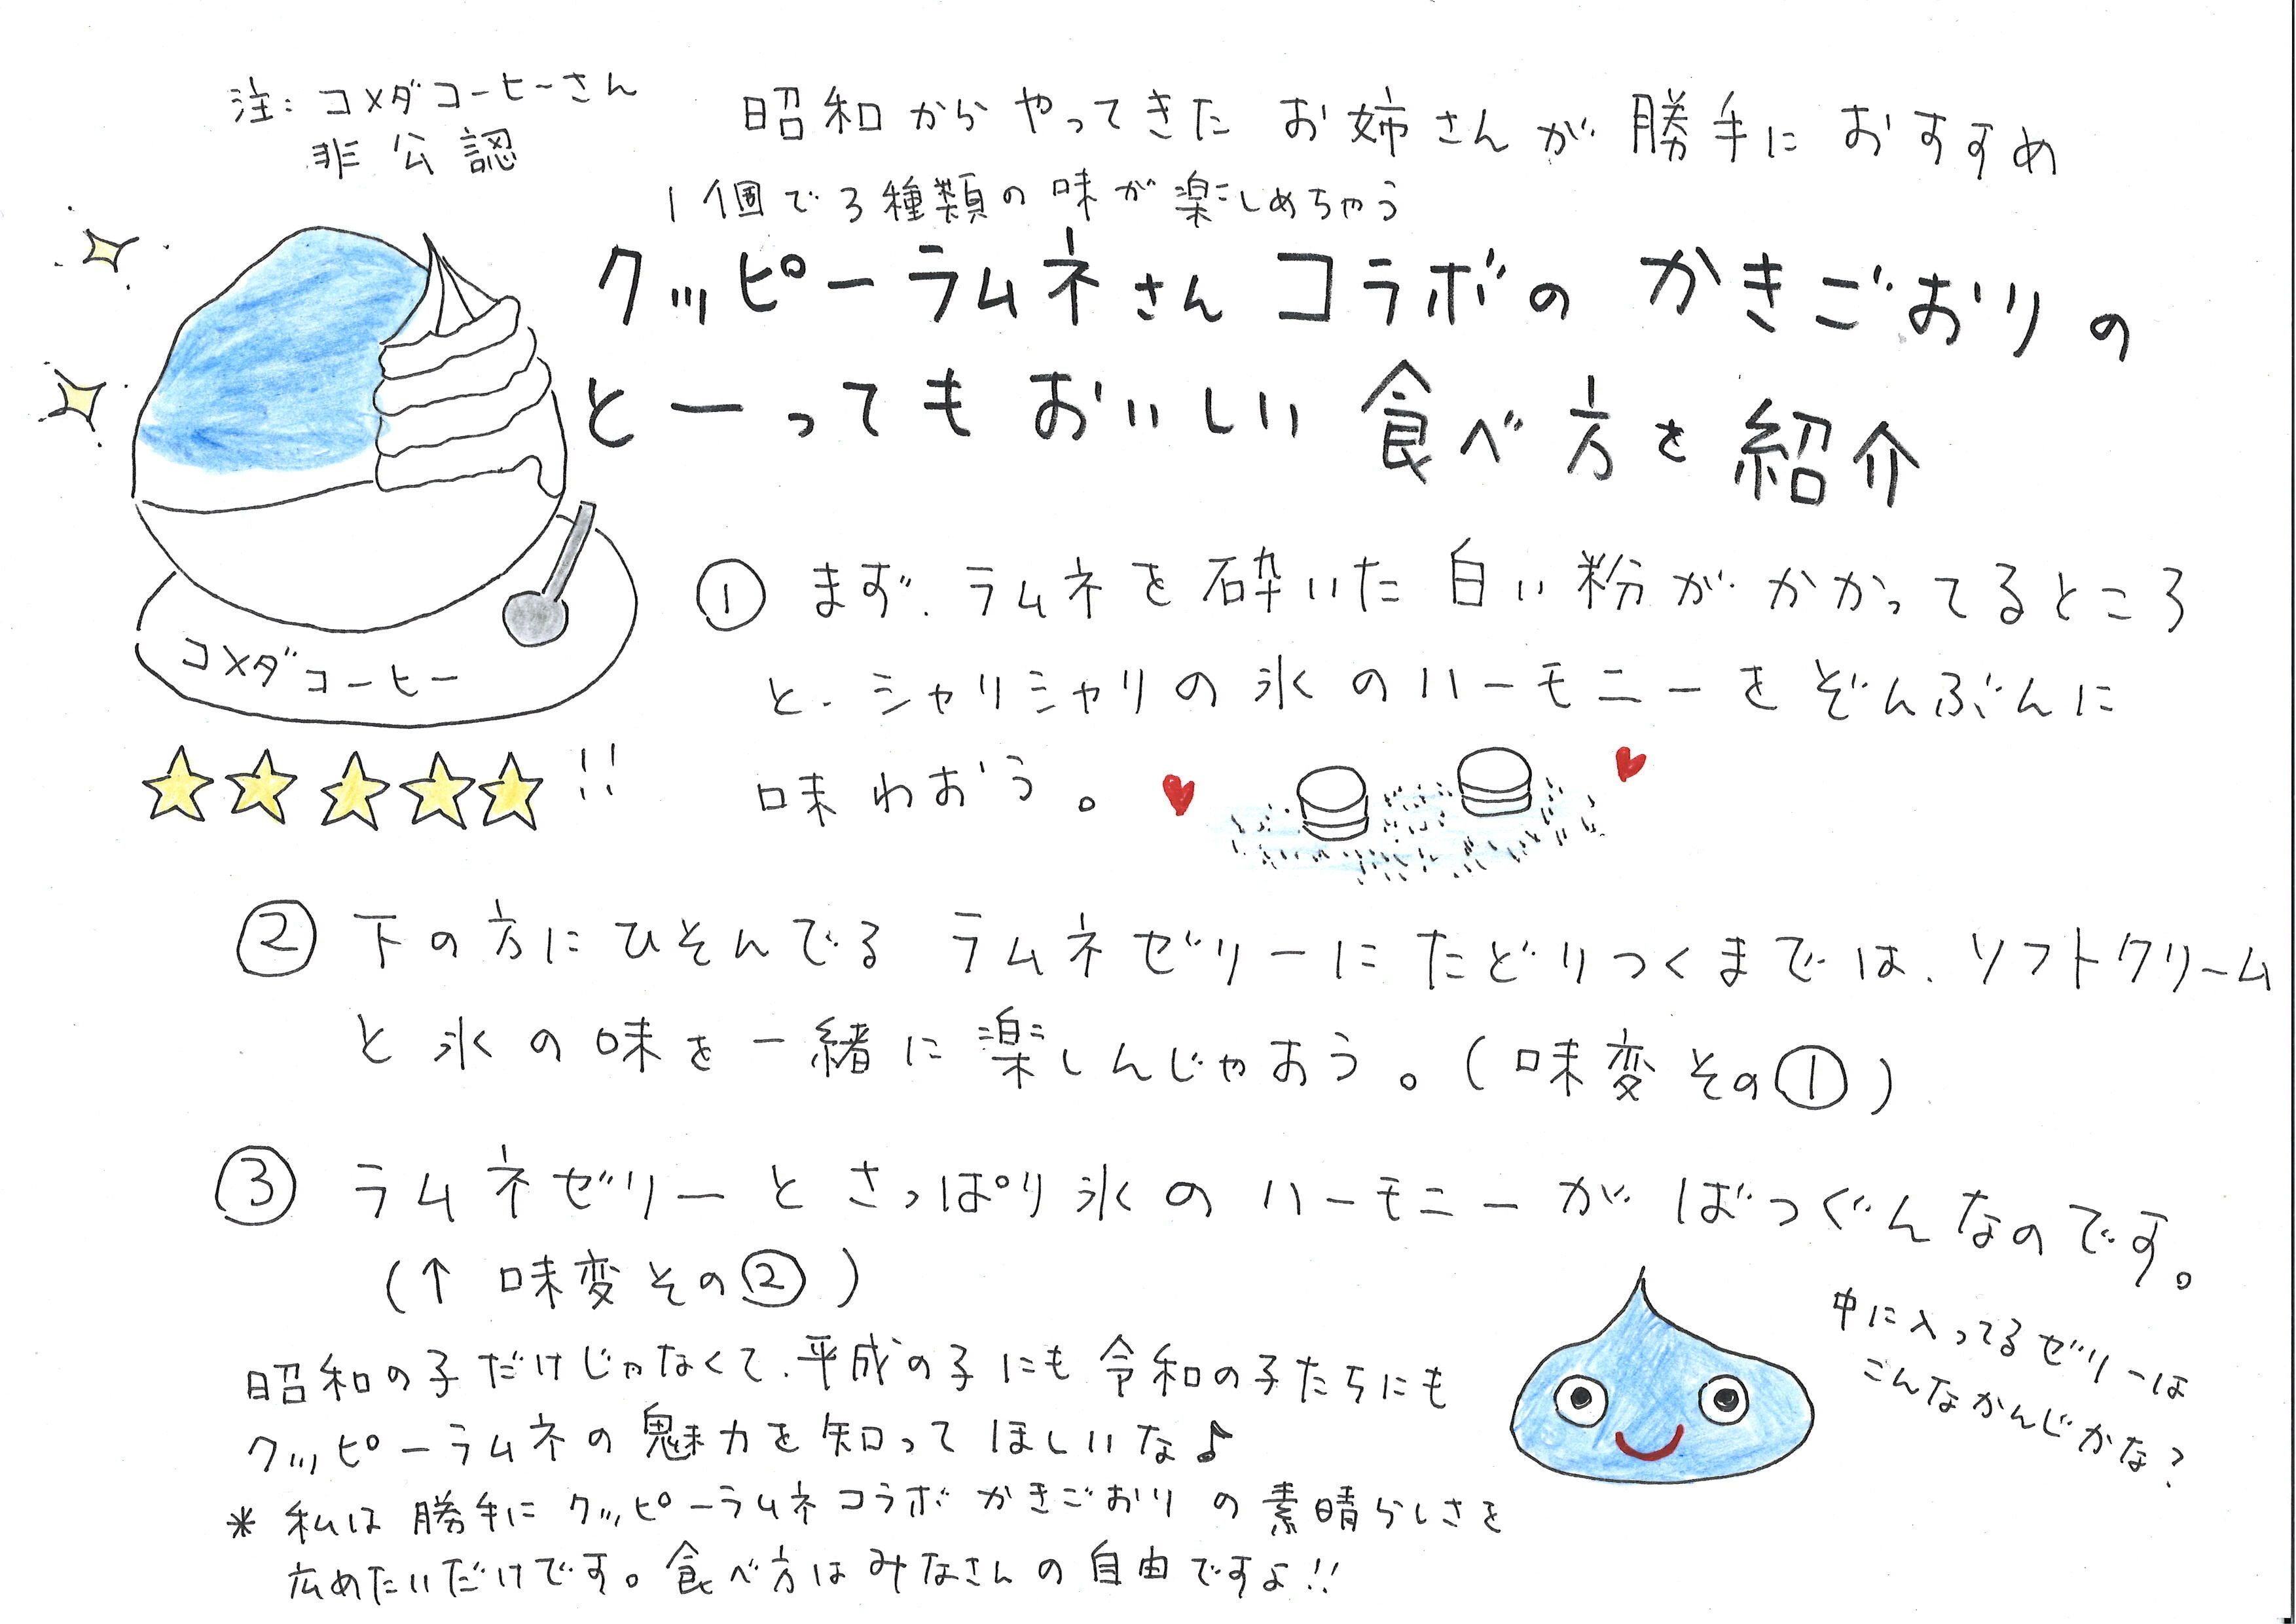 注：コメダコーヒーさん
非公認
昭和からやってきたお姉さんが勝手におすすめ
1個で3種類の味が楽しめちゃう
クッピーラムネさんコラボのかきごおりの
とーってもおいしい食べ方を紹介
コメダコーヒー
!!
① まず、ラムネを砕いた白い粉がかかってるところ
と、シャリシャリの氷のハーモニーをぞんぶんに
味わおう。
② 下の方にひそんでるラムネゼリーにたどりつくまでは、ソフトクリーム
と氷の味を一緒に楽しんじゃおう。(味変その①)
③ ラムネゼリーとさっぱり氷のハーモニーがばつぐんなのです。
(↑味変その②)
中に入ってるゼリーは
こんなかんじかな?
昭和の子だけじゃなくて、平成の子にも令和の子たちにも
クッピーラムネの魅力を知ってほしいな♪
＊私は勝手にクッピーラムネコラボかきごおりの素晴らしさを
広めたいだけです。食べ方はみなさんの自由ですよ!!